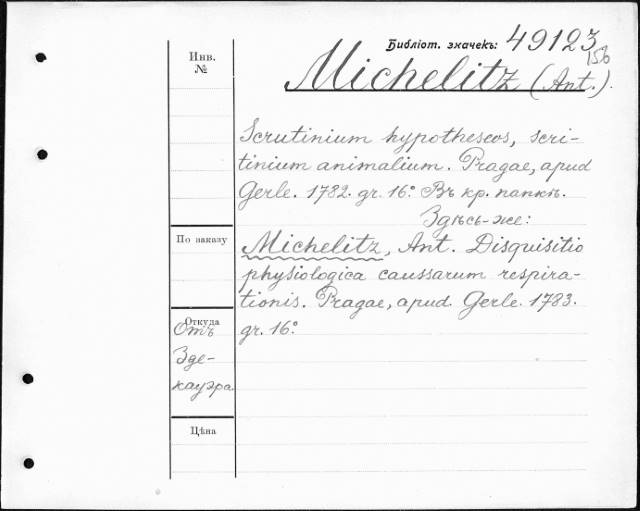 Библіот. значекъ: 49123
156
Инв.
№
Michelitz (Ant.).
Scrutinium hypotheseos, scri-
tinium animalium. Pragae, apud
Gerle. 1782. gr. 16° Въ кр. папкѣ.
Здѣсь-же:
По заказу
Michelitz, Ant. Disquisitio
physiologica caussarum respira-
tionis. Pragae, apud Gerle. 1783.
gr. 16°
Откуда
Отъ
Зде-
кауэра
Цѣна